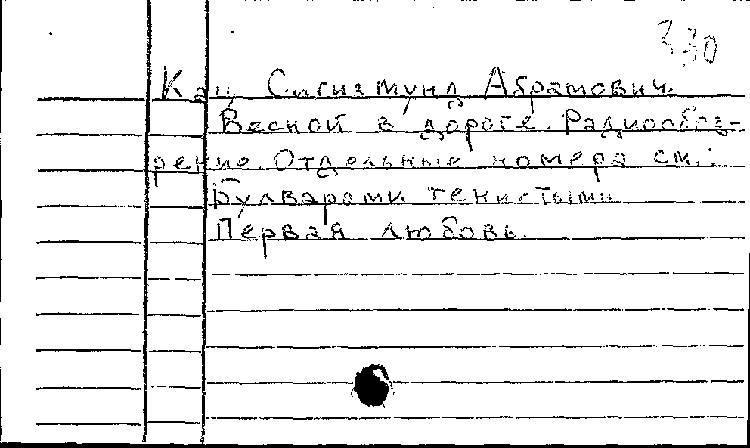 330
Кац Сигизмунд Абрамович.
Весной в дороге. Радиообоз-
рение. Отдельные номера см.:
Бульварами тенистыми
Первая любовь.